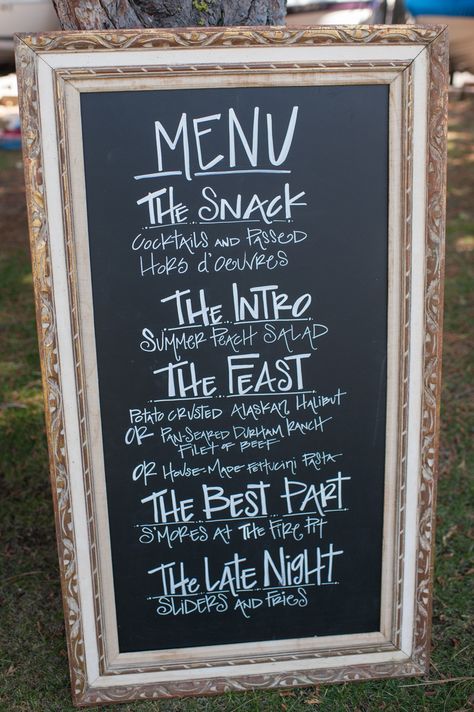 MENU
THE SNACK
COCKTAILS AND PASSED
HORS D'OEUVRES
THE INTRO
SUMMER PEACH SALAD
THE FEAST
POTATO CRUSTED ALASKAN HALIBUT
OR PAN-SEARED DURHAM RANCH
FILET OF BEEF
OR HOUSE-MADE FETTUCINI PASTA
THE BEST PART
S'MORES AT THE FIRE PIT
THE LATE NIGHT
SLIDERS AND FRIES